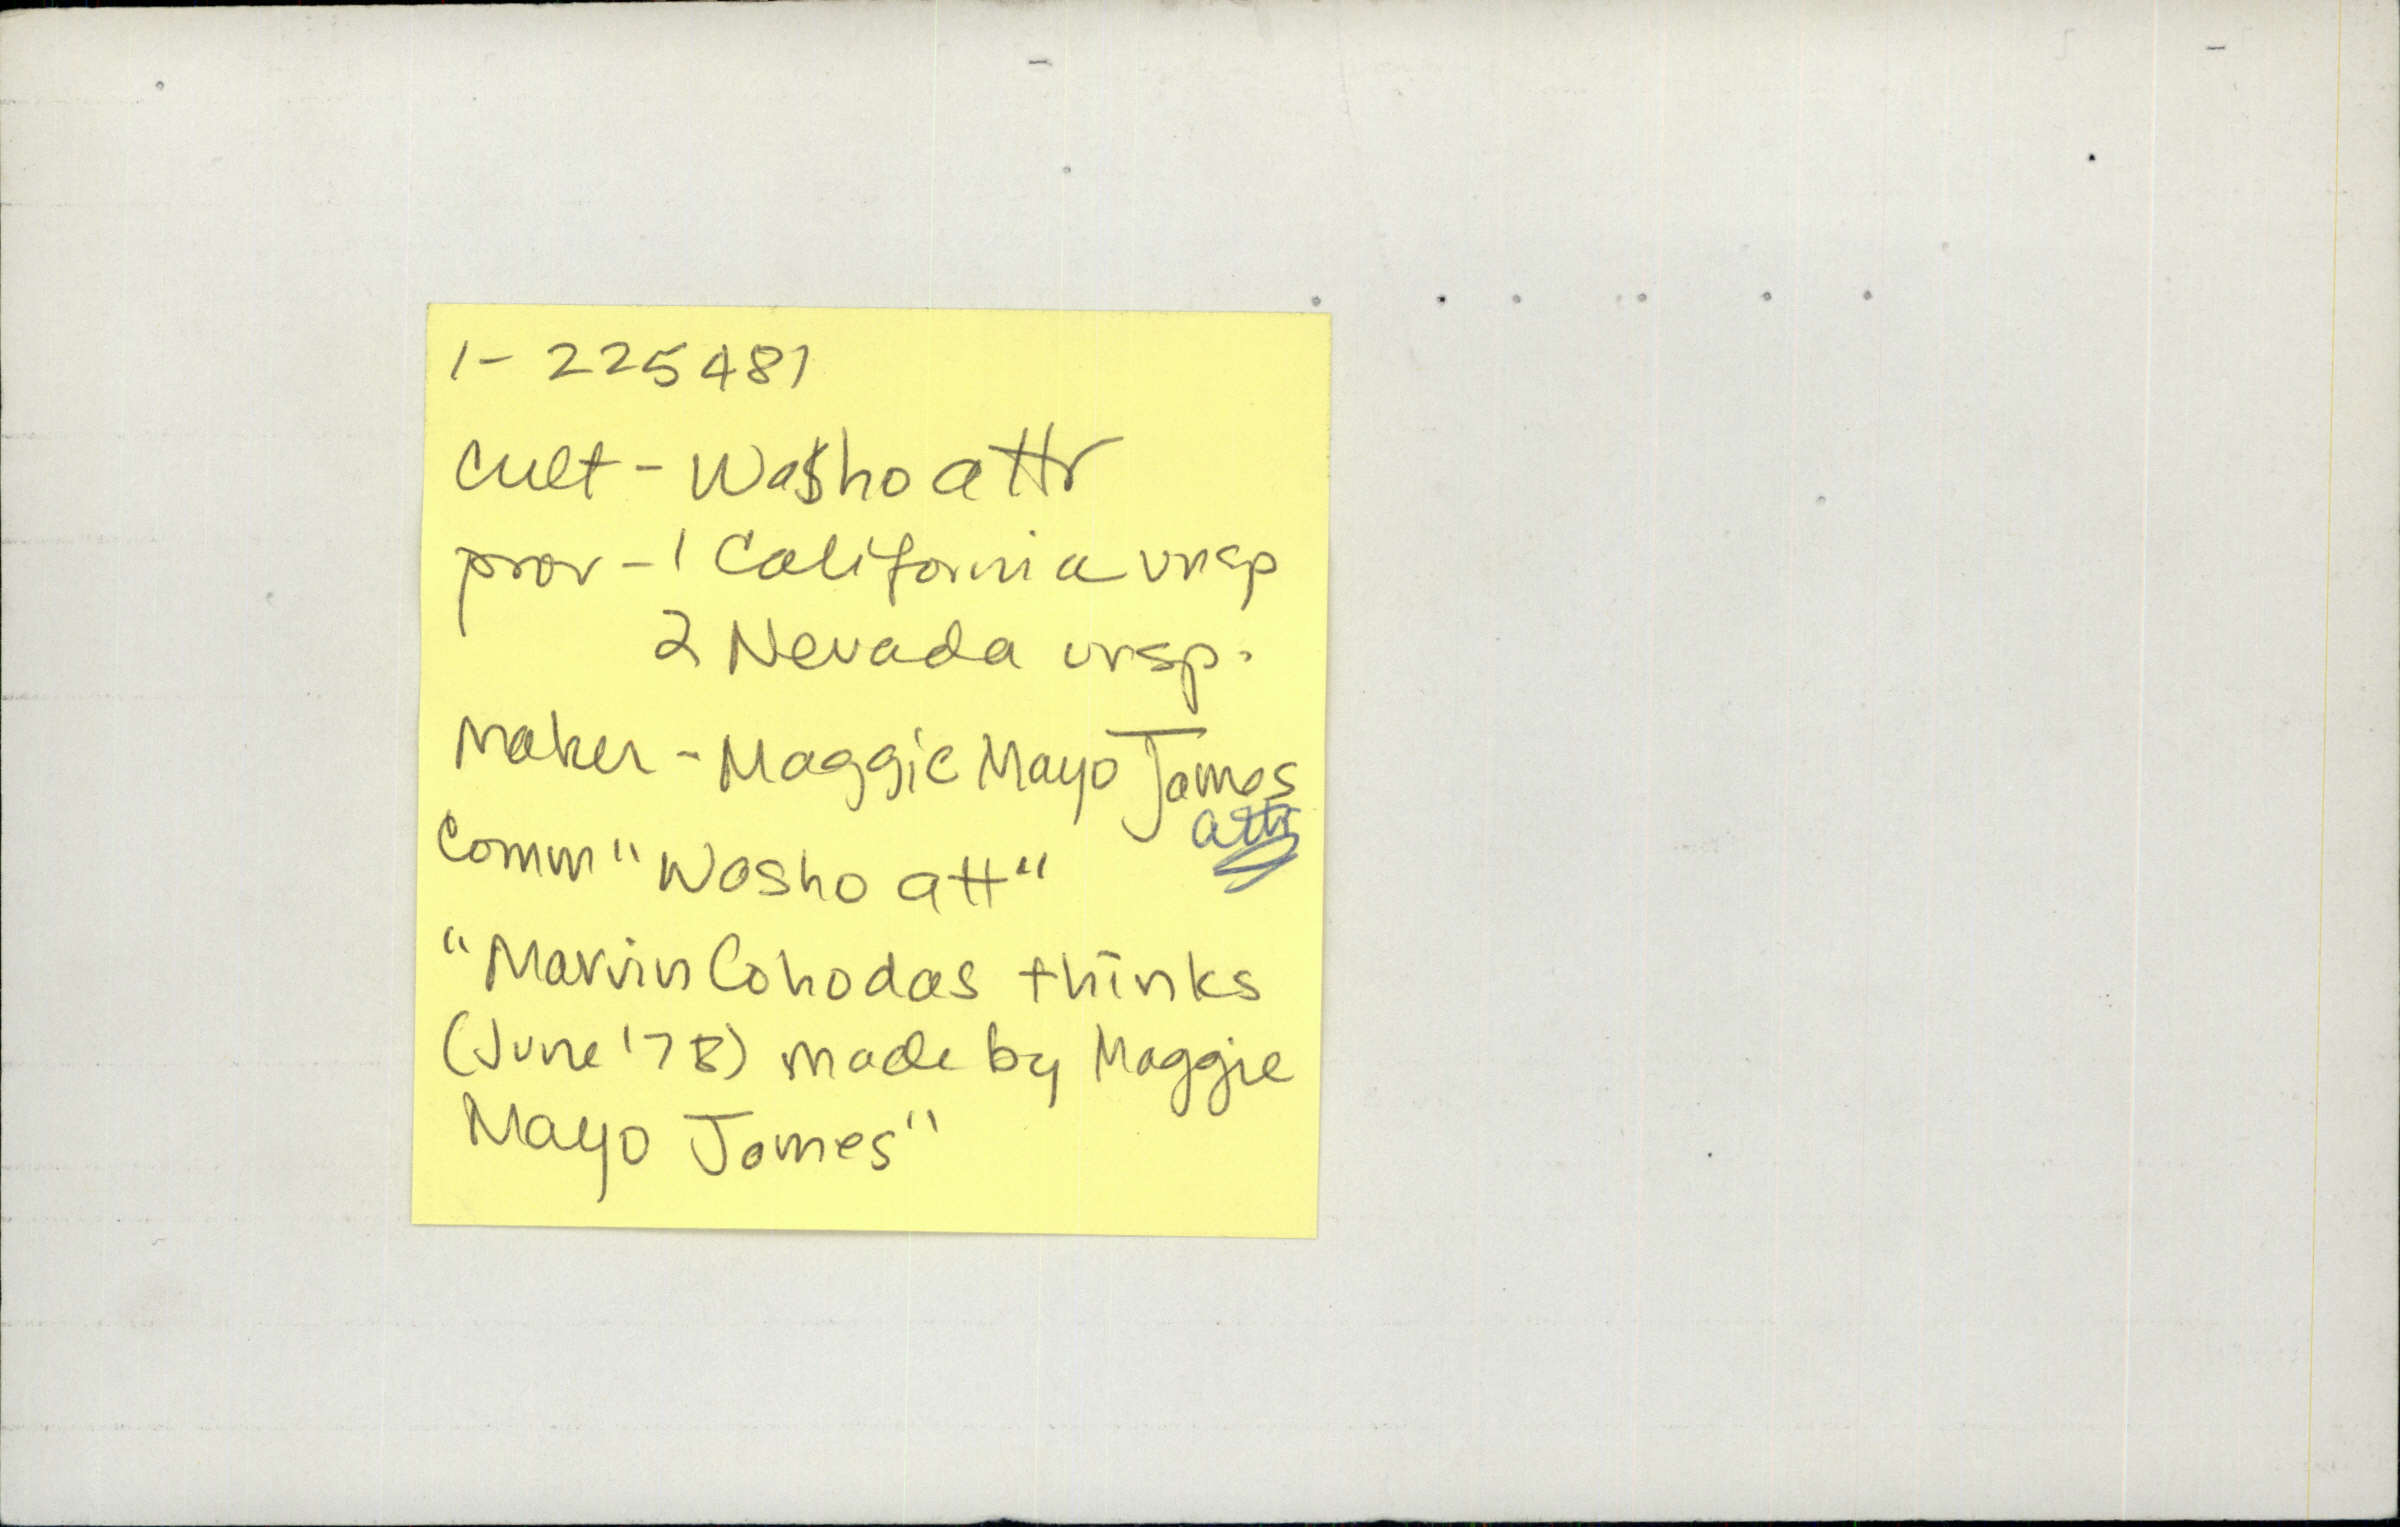 1- 225481
Cult - Washo attr
prov - 1 California unsp
2 Nevada unsp.
Maker - Maggie Mayo James
attr
Comm "Washo att"
"Marvin Cohodas thinks
(June '78) made by Maggie
Mayo James"